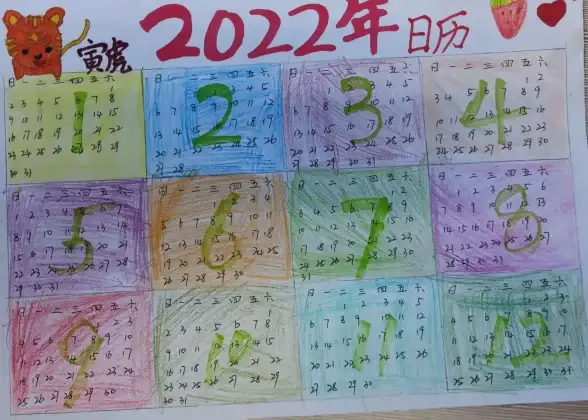 2022年日历
寅虎
日 一 二 三 四 五 六
1
1
2 3 4 5 6 7 8
9 10 11 12 13 14 15
16 17 18 19 20 21 22
23 24 25 26 27 28 29
30 31
日 一 二 三 四 五 六
2
3 4 5
6 7 8 9 10 11 12
13 14 15 16 17 18 19
20 21 22 23 24 25 26
27 28
日 一 二 三 四 五 六
3
3 4 5
6 7 8 9 10 11 12
13 14 15 16 17 18 19
20 21 22 23 24 25 26
27 28 29 30 31
日 一 二 三 四 五 六
4
1 2
3 4 5 6 7 8 9
10 11 12 13 14 15 16
17 18 19 20 21 22 23
24 25 26 27 28 29 30
日 一 二 三 四 五 六
5
1 2 3 4 5 6 7
8 9 10 11 12 13 14
15 16 17 18 19 20 21
22 23 24 25 26 27 28
29 30 31
日 一 二 三 四 五 六
6
3 4
5 6 7 8 9 10 11
12 13 14 15 16 17 18
19 20 21 22 23 24 25
26 27 28 29 30
日 一 二 三 四 五 六
7
1 2
3 4 5 6 7 8 9
10 11 12 13 14 15 16
17 18 19 20 21 22 23
24 25 26 27 28 29 30
31
日 一 二 三 四 五 六
8
1 2 3 4 5 6
7 8 9 10 11 12 13
14 15 16 17 18 19 20
21 22 23 24 25 26 27
28 29 30 31
日 一 二 三 四 五 六
9
1 2 3
4 5 6 7 8 9 10
11 12 13 14 15 16 17
18 19 20 21 22 23 24
25 26 27 28 29 30
日 一 二 三 四 五 六
10
1
2 3 4 5 6 7 8
9 10 11 12 13 14 15
16 17 18 19 20 21 22
23 24 25 26 27 28 29
30 31
日 一 二 三 四 五 六
11
1 2 3 4 5
6 7 8 9 10 11 12
13 14 15 16 17 18 19
20 21 22 23 24 25 26
27 28 29 30
日 一 二 三 四 五 六
12
1 2 3
4 5 6 7 8 9 10
11 12 13 14 15 16 17
18 19 20 21 22 23 24
25 26 27 28 29 30 31